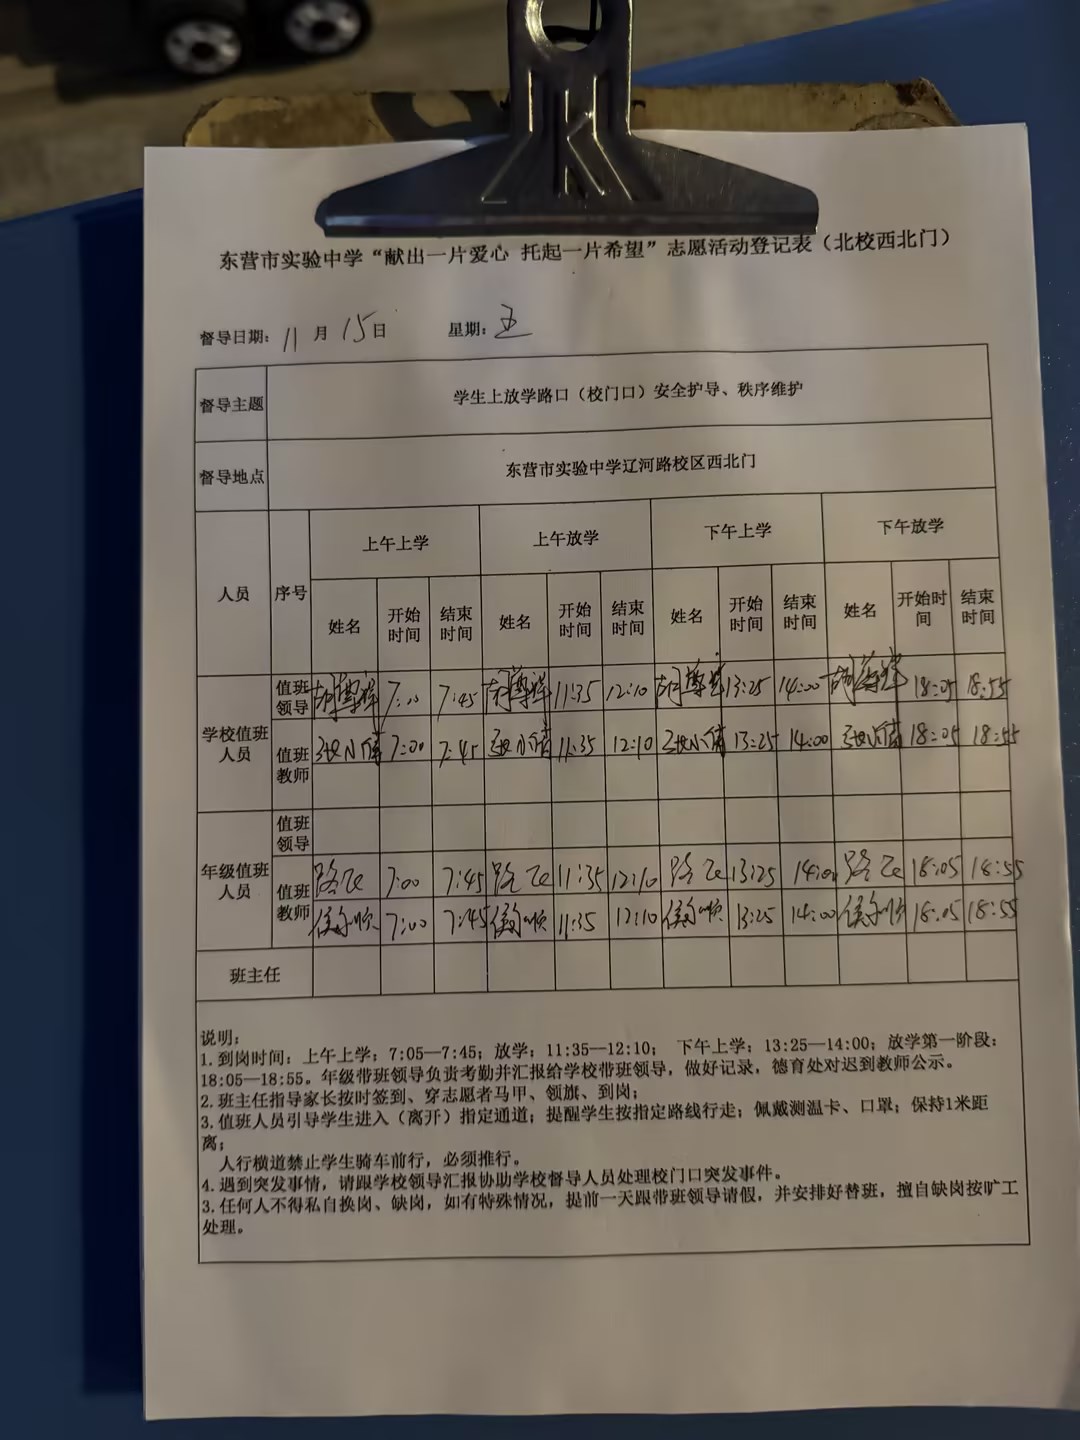 东营市实验中学“献出一片爱心 托起一片希望”志愿活动登记表（北校西北门）
督导日期：11月15日 星期：五
督导主题 学生上放学路口（校门口）安全护导、秩序维护
督导地点 东营市实验中学辽河路校区西北门
人员 序号 上午上学 上午放学 下午上学 下午放学
姓名 开始时间 结束时间 姓名 开始时间 结束时间 姓名 开始时间 结束时间 姓名 开始时间 结束时间
学校值班人员 值班领导 7:00 7:45 11:35 12:10 13:25 14:00 18:05 18:55
值班教师 7:00 7:45 11:35 12:10 13:25 14:00 18:05 18:55
年级值班人员 值班领导
值班教师 7:00 7:45 11:35 12:10 13:25 14:00 18:05 18:55
7:00 7:45 11:35 12:10 13:25 14:00 18:05 18:55
班主任
说明；
1.到岗时间：上午上学；7:05—7:45；放学；11:35—12:10； 下午上学；13:25—14:00；放学第一阶段：
18:05—18:55。年级带班领导负责考勤并汇报给学校带班领导，做好记录，德育处对迟到教师公示。
2.班主任指导家长按时签到、穿志愿者马甲、领旗、到岗；
3.值班人员引导学生进入（离开）指定通道；提醒学生按指定路线行走；佩戴测温卡、口罩；保持1米距
离；
人行横道禁止学生骑车前行，必须推行。
4.遇到突发事情，请跟学校领导汇报协助学校督导人员处理校门口突发事件。
3.任何人不得私自换岗、缺岗，如有特殊情况，提前一天跟带班领导请假，并安排好替班，擅自缺岗按旷工
处理。